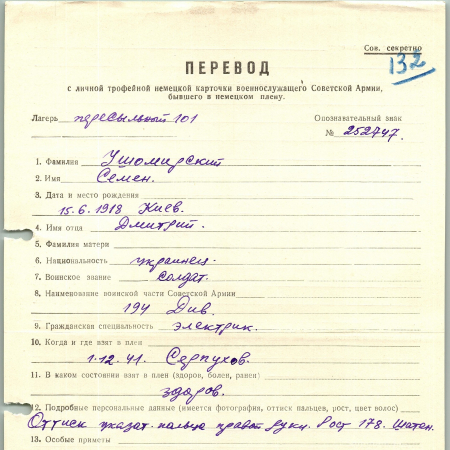 Сов. секретно
132
ПЕРЕВОД
с личной трофейной немецкой карточки военнослужащего Советской Армии,
бывшего в немецком плену.
Лагерь пересыльный 101 Опознавательный знак
№ 252747.
1. Фамилия Ушомирский
2. Имя Семен.
3. Дата и место рождения
15.6.1918 Киев.
4. Имя отца Дмитрий.
5. Фамилия матери
6. Национальность украинец.
7. Воинское звание солдат.
8. Наименование воинской части Советской Армии
194 Див.
9. Гражданская специальность электрик.
10. Когда и где взят в плен
1.12.41. Серпухов.
11. В каком состоянии взят в плен (здоров, болен, ранен)
здоров.
12. Подробные персональные данные (имеется фотография, оттиск пальцев, рост, цвет волос)
Оттиск указат. пальца правой руки. Рост 178. Шатен.
13. Особые приметы